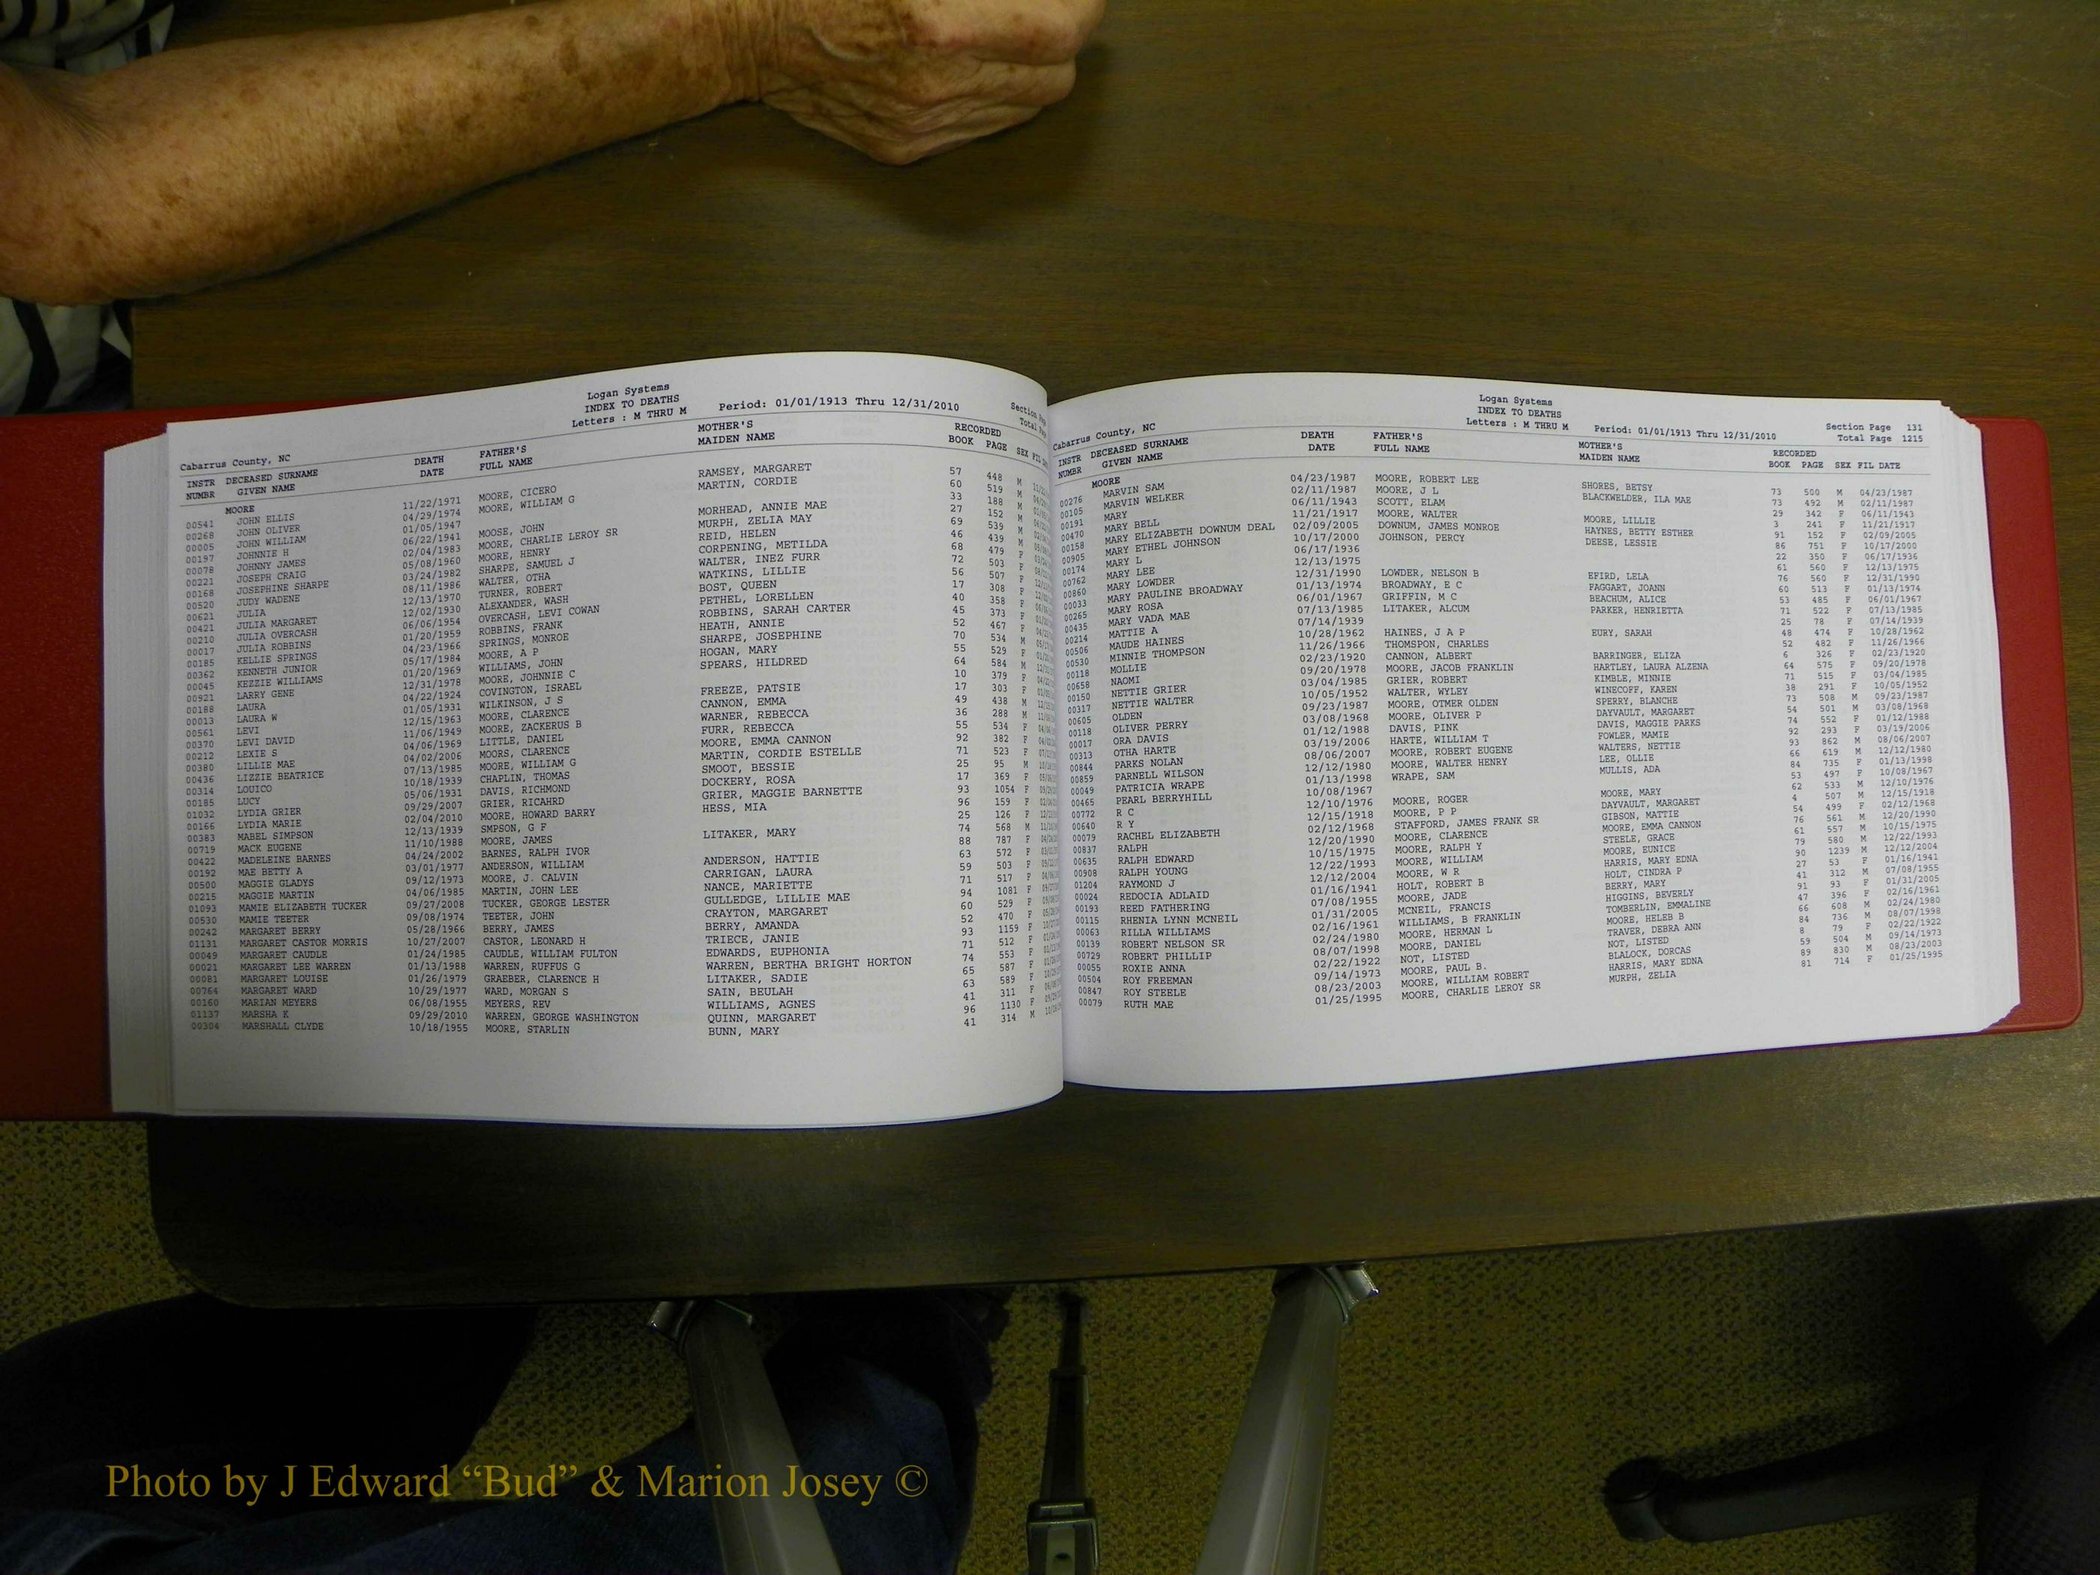 Logan Systems
INDEX TO DEATHS
Letters : M THRU M Period: 01/01/1913 Thru 12/31/2010
Cabarrus County, NC
INSTR DECEASED SURNAME DEATH FATHER'S MOTHER'S RECORDED
NUMBR GIVEN NAME DATE FULL NAME MAIDEN NAME BOOK PAGE SEX
MOORE
00541 JOHN ELLIS 11/22/1971 MOORE, CICERO RAMSEY, MARGARET 57 448 M
00268 JOHN OLIVER 04/29/1974 MOORE, WILLIAM G MARTIN, CORDIE 60 519 M
00005 JOHN WILLIAM 01/05/1947 33 188 M
00197 JOHNNIE H 06/22/1941 MOOSE, JOHN MORHEAD, ANNIE MAE 27 152 M
00078 JOHNNY JAMES 02/04/1983 MOORE, CHARLIE LEROY SR MURPH, ZELIA MAY 69 539 M
00221 JOSEPH CRAIG 05/08/1960 MOORE, HENRY REID, HELEN 46 439 M
00168 JOSEPHINE SHARPE 03/24/1982 SHARPE, SAMUEL J CORPENING, METILDA 68 479 F
00520 JUDY WADENE 08/11/1986 WALTER, OTHA WALTER, INEZ FURR 72 503 F
00621 JULIA 12/13/1970 TURNER, ROBERT WATKINS, LILLIE 56 507 F
00421 JULIA MARGARET 12/02/1930 ALEXANDER, WASH BOST, QUEEN 17 308 F
00210 JULIA OVERCASH 06/06/1954 OVERCASH, LEVI COWAN PETHEL, LORELLEN 40 358 F
00017 JULIA ROBBINS 01/20/1959 ROBBINS, FRANK ROBBINS, SARAH CARTER 45 373 F
00185 KELLIE SPRINGS 04/23/1966 SPRINGS, MONROE HEATH, ANNIE 52 467 F
00362 KENNETH JUNIOR 05/17/1984 MOORE, A P SHARPE, JOSEPHINE 70 534 M
00045 KEZZIE WILLIAMS 01/20/1969 WILLIAMS, JOHN HOGAN, MARY 55 529 F
00921 LARRY GENE 12/31/1978 MOORE, JOHNNIE C SPEARS, HILDRED 64 584 M
00188 LAURA 04/22/1924 COVINGTON, ISRAEL 10 379 F
00013 LAURA W 01/05/1931 WILKINSON, J S FREEZE, PATSIE 17 303 F
00561 LEVI 12/15/1963 MOORE, CLARENCE CANNON, EMMA 49 438 M
00370 LEVI DAVID 11/06/1949 MOORE, ZACKERUS B WARNER, REBECCA 36 288 M
00212 LEXIE S 04/06/1969 LITTLE, DANIEL FURR, REBECCA 55 534 F
00380 LILLIE MAE 04/02/2006 MOORS, CLARENCE MOORE, EMMA CANNON 92 382 F
00436 LIZZIE BEATRICE 07/13/1985 MOORE, WILLIAM G MARTIN, CORDIE ESTELLE 71 523 F
00314 LOUICO 10/18/1939 CHAPLIN, THOMAS SMOOT, BESSIE 25 95 M
00185 LUCY 05/06/1931 DAVIS, RICHMOND DOCKERY, ROSA 17 369 F
01032 LYDIA GRIER 09/29/2007 GRIER, RICAHRD GRIER, MAGGIE BARNETTE 93 1054 F
00166 LYDIA MARIE 02/04/2010 MOORE, HOWARD BARRY HESS, MIA 96 159 F
00383 MABEL SIMPSON 12/13/1939 SMPSON, G F 25 126 F
00719 MACK EUGENE 11/10/1988 MOORE, JAMES LITAKER, MARY 74 568 M
00422 MADELEINE BARNES 04/24/2002 BARNES, RALPH IVOR 88 787 F
00192 MAE BETTY A 03/01/1977 ANDERSON, WILLIAM ANDERSON, HATTIE 63 572 F
00500 MAGGIE GLADYS 09/12/1973 MOORE, J. CALVIN CARRIGAN, LAURA 59 503 F
00215 MAGGIE MARTIN 04/06/1985 MARTIN, JOHN LEE NANCE, MARIETTE 71 517 F
01093 MAMIE ELIZABETH TUCKER 09/27/2008 TUCKER, GEORGE LESTER GULLEDGE, LILLIE MAE 94 1081 F
00530 MAMIE TEETER 09/08/1974 TEETER, JOHN CRAYTON, MARGARET 60 529 F
00242 MARGARET BERRY 05/28/1966 BERRY, JAMES BERRY, AMANDA 52 470 F
01131 MARGARET CASTOR MORRIS 10/27/2007 CASTOR, LEONARD H TRIECE, JANIE 93 1159 F
00049 MARGARET CAUDLE 01/24/1985 CAUDLE, WILLIAM FULTON EDWARDS, EUPHONIA 71 512 F
00021 MARGARET LEE WARREN 01/13/1988 WARREN, RUFFUS G WARREN, BERTHA BRIGHT HORTON 74 553 F
00081 MARGARET LOUISE 01/26/1979 GRAEBER, CLARENCE H LITAKER, SADIE 65 587 F
00764 MARGARET WARD 10/29/1977 WARD, MORGAN S SAIN, BEULAH 63 589 F
00160 MARIAN MEYERS 06/08/1955 MEYERS, REV WILLIAMS, AGNES 41 311 F
01137 MARSHA K 09/29/2010 WARREN, GEORGE WASHINGTON QUINN, MARGARET 96 1130 F
00304 MARSHALL CLYDE 10/18/1955 MOORE, STARLIN BUNN, MARY 41 314 M
Logan Systems
INDEX TO DEATHS
Letters : M THRU M Period: 01/01/1913 Thru 12/31/2010
Section Page 131
Total Page 1215
Cabarrus County, NC
INSTR DECEASED SURNAME DEATH FATHER'S MOTHER'S RECORDED
NUMBR GIVEN NAME DATE FULL NAME MAIDEN NAME BOOK PAGE SEX FIL DATE
MOORE
00276 MARVIN SAM 04/23/1987 MOORE, ROBERT LEE SHORES, BETSY 73 500 M 04/23/1987
00105 MARVIN WELKER 02/11/1987 MOORE, J L BLACKWELDER, ILA MAE 73 492 M 02/11/1987
00191 MARY 06/11/1943 SCOTT, ELAM 29 342 F 06/11/1943
00470 MARY BELL 11/21/1917 MOORE, WALTER MOORE, LILLIE 3 241 F 11/21/1917
00158 MARY ELIZABETH DOWNUM DEAL 02/09/2005 DOWNUM, JAMES MONROE HAYNES, BETTY ESTHER 91 152 F 02/09/2005
00905 MARY ETHEL JOHNSON 10/17/2000 JOHNSON, PERCY DEESE, LESSIE 86 751 F 10/17/2000
00174 MARY L 06/17/1936 22 350 F 06/17/1936
00762 MARY LEE 12/13/1975 61 560 F 12/13/1975
00860 MARY LOWDER 12/31/1990 LOWDER, NELSON B EFIRD, LELA 76 560 F 12/31/1990
00033 MARY PAULINE BROADWAY 01/13/1974 BROADWAY, E C FAGGART, JOANN 60 513 F 01/13/1974
00265 MARY ROSA 06/01/1967 GRIFFIN, M C BEACHUM, ALICE 53 485 F 06/01/1967
00435 MARY VADA MAE 07/13/1985 LITAKER, ALCUM PARKER, HENRIETTA 71 522 F 07/13/1985
00214 MATTIE A 07/14/1939 25 78 F 07/14/1939
00506 MAUDE HAINES 10/28/1962 HAINES, J A P EURY, SARAH 48 474 F 10/28/1962
00530 MINNIE THOMPSON 11/26/1966 THOMSPON, CHARLES 52 482 F 11/26/1966
00118 MOLLIE 02/23/1920 CANNON, ALBERT BARRINGER, ELIZA 6 326 F 02/23/1920
00658 NAOMI 09/20/1978 MOORE, JACOB FRANKLIN HARTLEY, LAURA ALZENA 64 575 F 09/20/1978
00150 NETTIE GRIER 03/04/1985 GRIER, ROBERT KIMBLE, MINNIE 71 515 F 03/04/1985
00317 NETTIE WALTER 10/05/1952 WALTER, WYLEY WINECOFF, KAREN 38 291 F 10/05/1952
00605 OLDEN 09/23/1987 MOORE, OTMER OLDEN SPERRY, BLANCHE 73 508 M 09/23/1987
00118 OLIVER PERRY 03/08/1968 MOORE, OLIVER P DAYVAULT, MARGARET 54 501 M 03/08/1968
00017 ORA DAVIS 01/12/1988 DAVIS, PINK DAVIS, MAGGIE PARKS 74 552 F 01/12/1988
00313 OTHA HARTE 03/19/2006 HARTE, WILLIAM T FOWLER, MAMIE 92 293 F 03/19/2006
00844 PARKS NOLAN 08/06/2007 MOORE, ROBERT EUGENE WALTERS, NETTIE 93 862 M 08/06/2007
00859 PARNELL WILSON 12/12/1980 MOORE, WALTER HENRY LEE, OLLIE 66 619 M 12/12/1980
00049 PATRICIA WRAPE 01/13/1998 WRAPE, SAM MULLIS, ADA 84 735 F 01/13/1998
00465 PEARL BERRYHILL 10/08/1967 53 497 F 10/08/1967
00772 R C 12/10/1976 MOORE, ROGER MOORE, MARY 62 533 M 12/10/1976
00640 R Y 12/15/1918 MOORE, P P DAYVAULT, MARGARET 4 507 M 12/15/1918
00079 RACHEL ELIZABETH 02/12/1968 STAFFORD, JAMES FRANK SR GIBSON, MATTIE 54 499 F 02/12/1968
00837 RALPH 12/20/1990 MOORE, CLARENCE MOORE, EMMA CANNON 76 561 M 12/20/1990
00635 RALPH EDWARD 10/15/1975 MOORE, RALPH Y STEELE, GRACE 61 557 M 10/15/1975
00908 RALPH YOUNG 12/22/1993 MOORE, WILLIAM MOORE, EUNICE 79 580 M 12/22/1993
01204 RAYMOND J 12/12/2004 MOORE, W R HARRIS, MARY EDNA 90 1239 M 12/12/2004
00024 REDOCIA ADLAID 01/16/1941 HOLT, ROBERT B HOLT, CINDRA P 27 53 F 01/16/1941
00193 REED FATHERING 07/08/1955 MOORE, JADE BERRY, MARY 41 312 M 07/08/1955
00115 RHENIA LYNN MCNEIL 01/31/2005 MCNEIL, FRANCIS HIGGINS, BEVERLY 91 93 F 01/31/2005
00063 RILLA WILLIAMS 02/16/1961 WILLIAMS, B FRANKLIN TOMBERLIN, EMMALINE 47 396 F 02/16/1961
00139 ROBERT NELSON SR 02/24/1980 MOORE, HERMAN L MOORE, HELEB B 66 608 M 02/24/1980
00729 ROBERT PHILLIP 08/07/1998 MOORE, DANIEL TRAVER, DEBRA ANN 84 736 M 08/07/1998
00055 ROXIE ANNA 02/22/1922 NOT, LISTED NOT, LISTED 8 79 F 02/22/1922
00504 ROY FREEMAN 09/14/1973 MOORE, PAUL B. BLALOCK, DORCAS 59 504 M 09/14/1973
00847 ROY STEELE 08/23/2003 MOORE, WILLIAM ROBERT HARRIS, MARY EDNA 89 830 M 08/23/2003
00079 RUTH MAE 01/25/1995 MOORE, CHARLIE LEROY SR MURPH, ZELIA 81 714 F 01/25/1995
Photo by J Edward “Bud” & Marion Josey ©